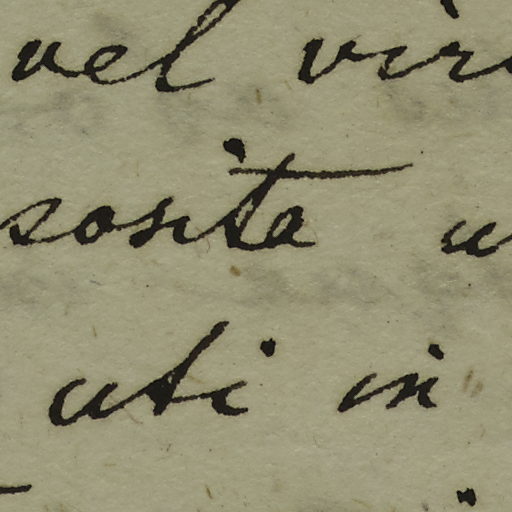 vel vir
sosita u
uti in